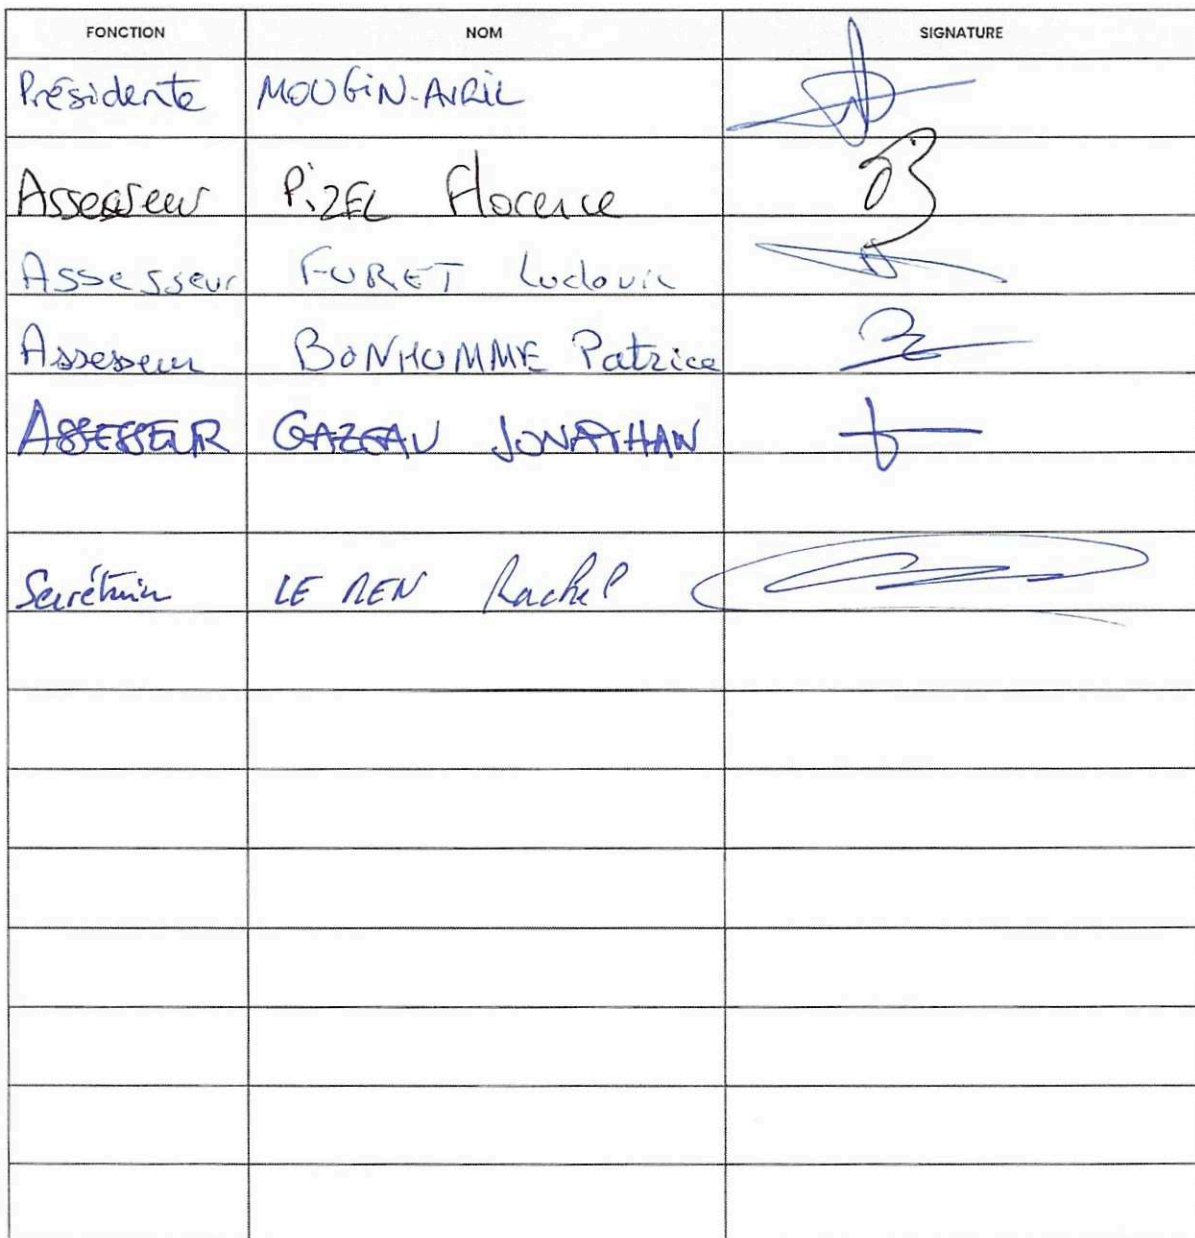 FONCTION NOM SIGNATURE
Présidente MOUGIN-AVRIL
Assesseur PIZEL Florence
Assesseur FURET Ludovic
Assesseur BONHOMME Patrice
ASSESSEUR GAZEAU JONATHAN
Secrétaire LE REN Rachel